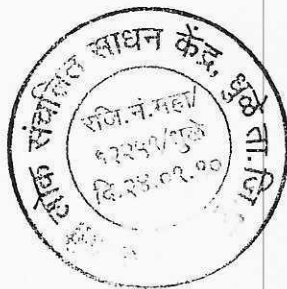 लोक संचलित साधन केंद्र, धुळे ता.जि
रजि.नं.महा/
१२२५१/धुळे
दि.२४.०१.१०